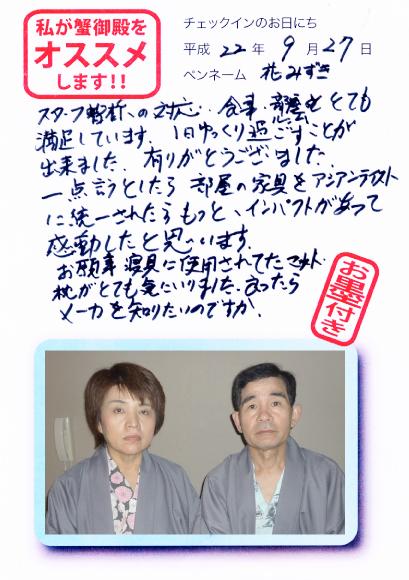 私が蟹御殿を
オススメ
します!!
チェックインのお日にち
平成 22 年 9 月 27 日
ペンネーム 花みずき
スタッフ の対応、食事、部屋もとても
満足しています。1日ゆっくり過ごすことが
出来ました。有りがとうございました。
一点言うとしたら 部屋の家具をアジアンテイスト
に統一されたらもっと、インパクトがあって
感動したと思います。
お願事 寝具に使用されてたマット、
枕がとても気にいりました。あったら
メーカを知りたいのですが。
お墨付き